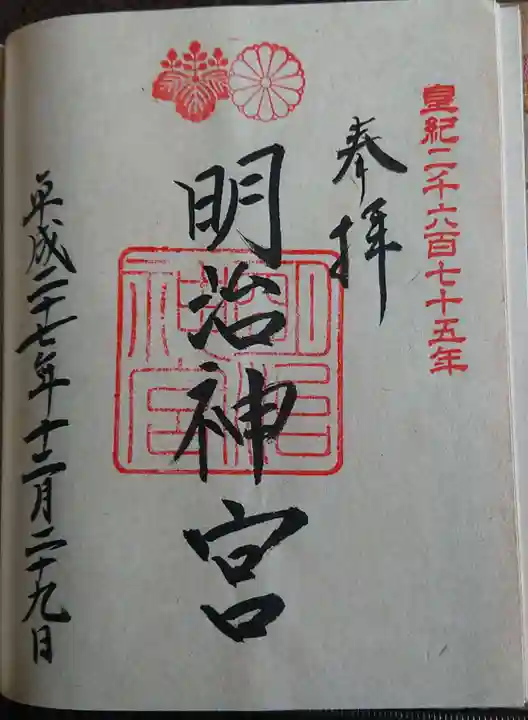 皇紀二千六百七十五年
奉拝
明治神宮
明治神宮
平成二十七年十二月二十九日